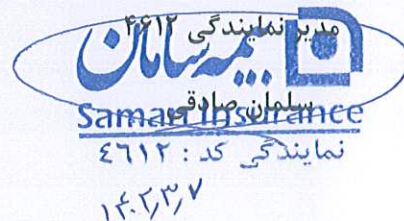 مدیر نمایندگی ۴۶۱۲
بیمه سامان
سلمان صادقی
Saman Insurance
نمایندگی کد : ٤٦١٢
۱۴۰۲٫۳٫۷